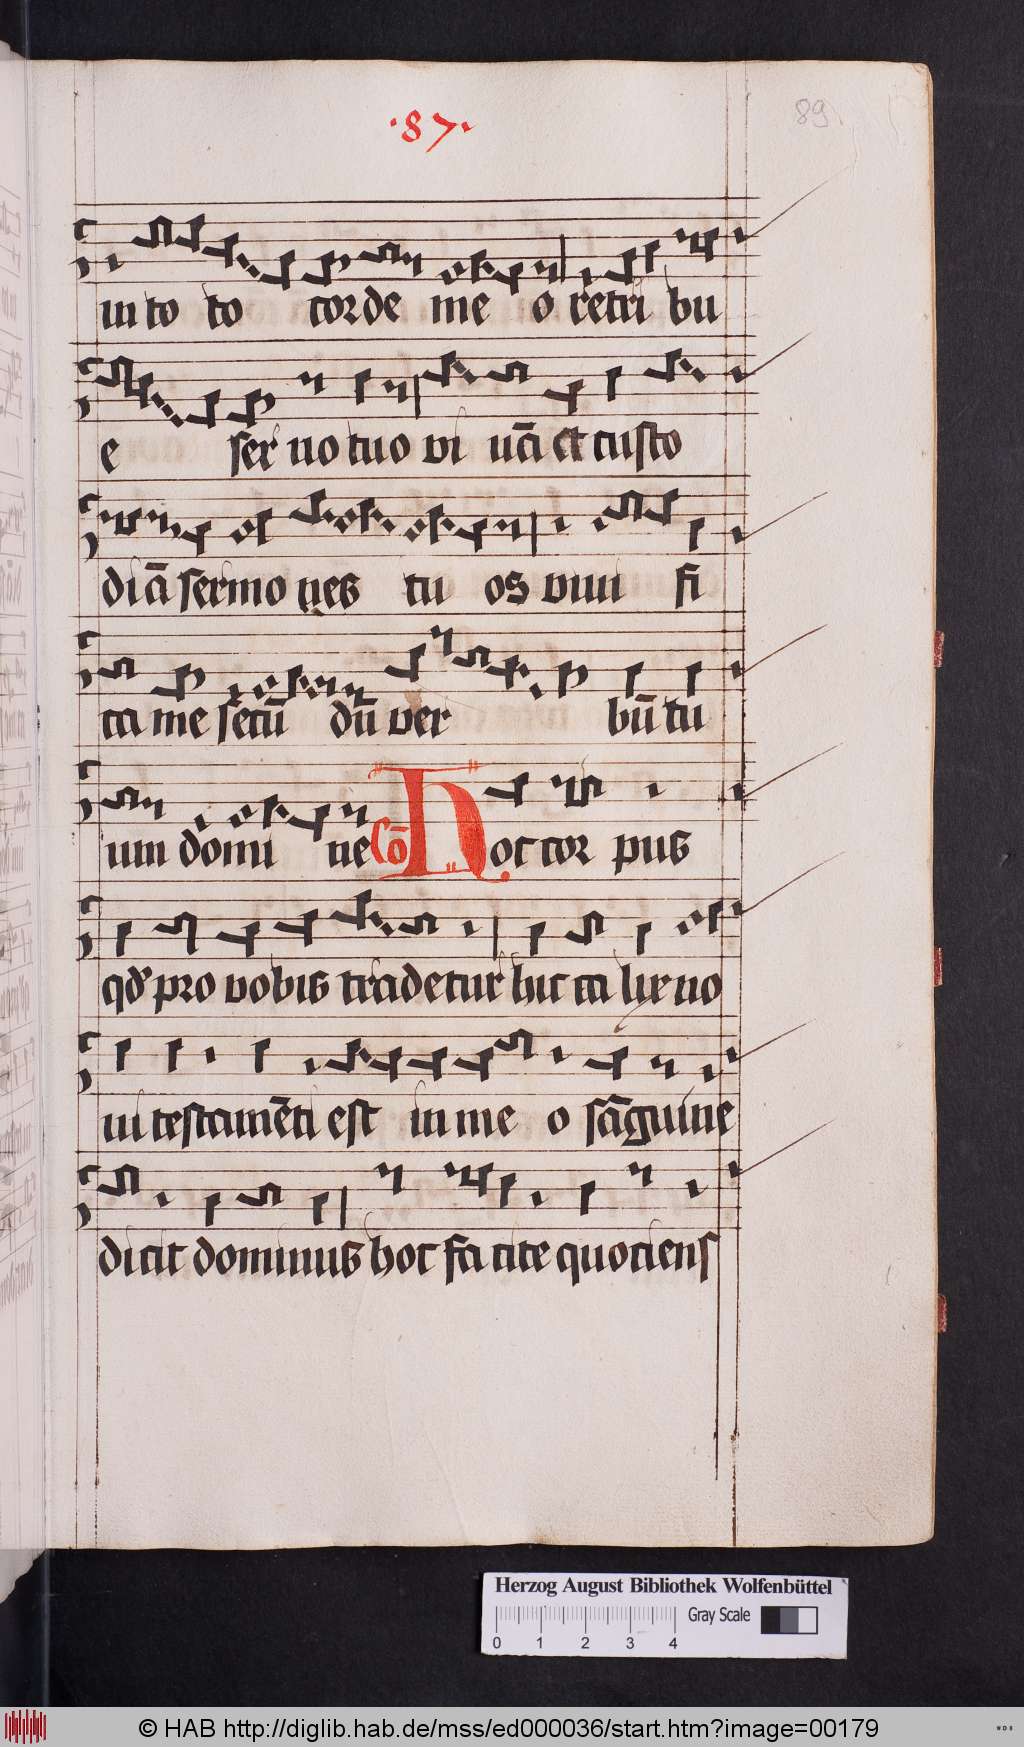 ·87·
89
in to to corde me o retri bu
e ser uo tuo vi uā et custo
diā sermo nes tu os viui fi
ca me secū dū ver bū tu
um domi ne Cō Hoc cor pus
qd pro vobis tradetur hic ca lix no
ui testamēti est in me o sāguine
dicit dominus hoc fa cite quociens
Herzog August Bibliothek Wolfenbüttel
0 1 2 3 4
Gray Scale
© HAB http://diglib.hab.de/mss/ed000036/start.htm?image=00179